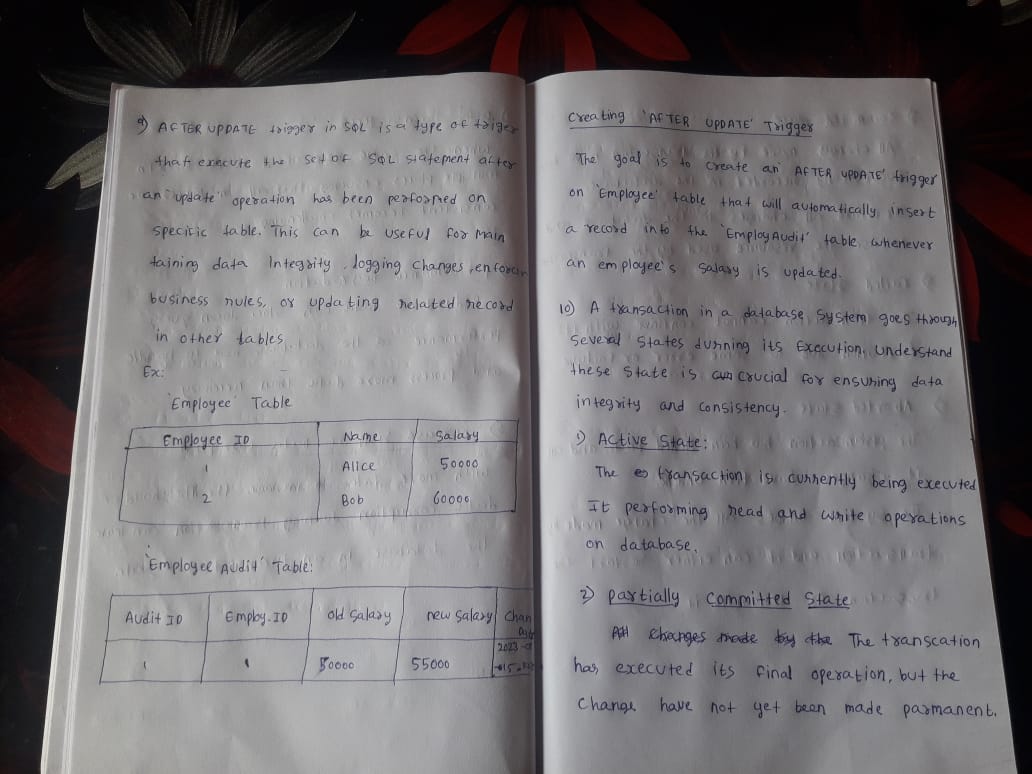 9) AFTER UPDATE trigger in SQL is a type of triger
that execute the set of SQL statement after
an "update" operation has been performed on
specific table. This can be useful for main
taining data Integrity, logging changes, enforcin
business rules, or updating related record
in other tables
Ex:
'Employee' Table
Employee ID Name Salary
1 Alice 50000
2 Bob 60000
'Employee Audit' Table:
Audit ID Employ.ID old Salary new Salary Chan
Date
1 1 50000 55000 2023-
Creating 'AFTER UPDATE' Trigger
The goal is to create an 'AFTER UPDATE' trigger
on 'Employee' table that will automatically insert
a record into the 'EmployAudit' table whenever
an employee's salary is updated.
10) A transaction in a database system goes through
Several States durning its Execution. Understand
these State is crucial for ensuring data
integrity and consistency.
1) Active State:
The transaction is currently being executed
It performing read and write operations
on database.
2) Partially Committed State
All changes made by the The transcation
has executed its final operation, but the
Change have not yet been made parmanent.